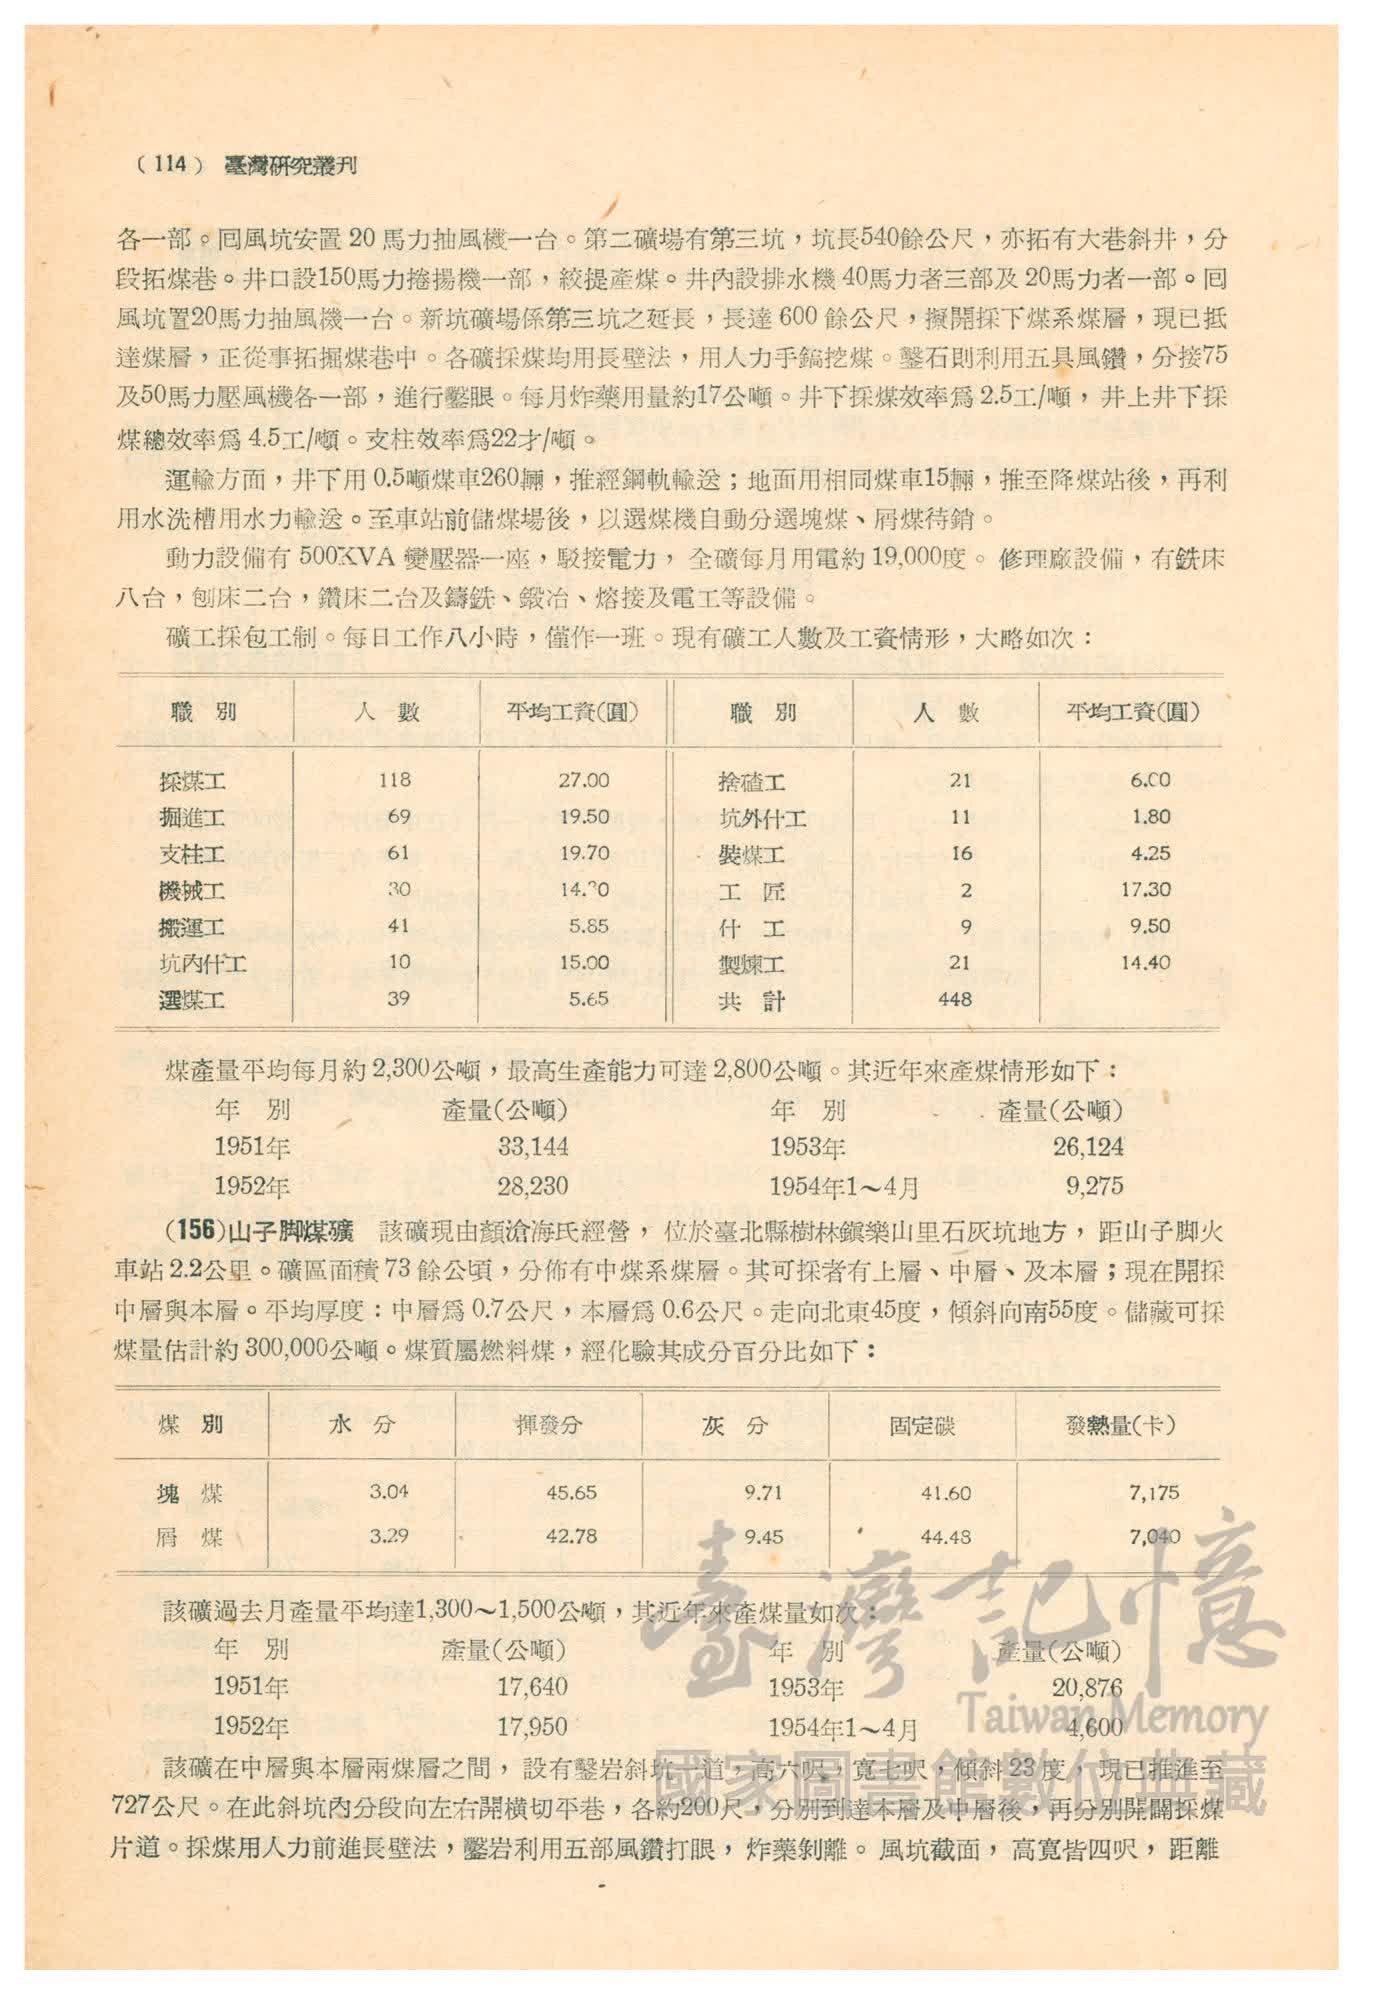 (114) 臺灣研究叢刊
各一部。囘風坑安置 20 馬力抽風機一台。第二礦場有第三坑，坑長540餘公尺，亦拓有大巷斜井，分
段拓煤巷。井口設150馬力捲揚機一部，絞提產煤。井內設排水機 40馬力者三部及 20馬力者一部。囘
風坑置20馬力抽風機一台。新坑礦場係第三坑之延長，長達 600 餘公尺，擬開採下煤系煤層，現已抵
達煤層，正從事拓掘煤巷中。各礦採煤均用長壁法，用人力手鎬挖煤。鑿石則利用五具風鑽，分接75
及50馬力壓風機各一部，進行鑿眼。每月炸藥用量約17公噸。井下採煤效率爲 2.5工/噸，井上井下採
煤總效率爲 4.5工/噸。支柱效率爲22才/噸。
運輸方面，井下用 0.5噸煤車260輛，推經鋼軌輸送；地面用相同煤車15輛，推至降煤站後，再利
用水洗槽用水力輸送。至車站前儲煤場後，以選煤機自動分選塊煤、屑煤待銷。
動力設備有 500KVA 變壓器一座，駁接電力， 全礦每月用電約 19,000度。 修理廠設備，有銑床
八台，刨床二台，鑽床二台及鑄銑、鍛冶、熔接及電工等設備。
礦工採包工制。每日工作八小時，僅作一班。現有礦工人數及工資情形，大略如次：
職 別 人 數 平均工資(圓) 職 別 人 數 平均工資(圓)
採煤工 118 27.00 捨碴工 21 6.00
掘進工 69 19.50 坑外什工 11 1.80
支柱工 61 19.70 裝煤工 16 4.25
機械工 30 工 匠 2 17.30
搬運工 41 5.85 什 工 9 9.50
坑內什工 10 15.00 製煉工 21 14.40
選煤工 39 5.65 共 計 448
煤產量平均每月約 2,300公噸，最高生產能力可達 2,800公噸。其近年來產煤情形如下：
年 別 產量(公噸) 年 別 產量(公噸)
1951年 33,144 1953年 26,124
1952年 28,230 1954年1～4月 9,275
(156)山子脚煤礦 該礦現由顏滄海氏經營， 位於臺北縣樹林鎭樂山里石灰坑地方， 距山子脚火
車站 2.2公里。礦區面積 73 餘公頃，分佈有中煤系煤層。其可採者有上層、中層、及本層；現在開採
中層與本層。平均厚度：中層爲 0.7公尺，本層爲 0.6公尺。走向北東45度，傾斜向南55度。儲藏可採
煤量估計約 300,000公噸。煤質屬燃料煤，經化驗其成分百分比如下：
煤 別 水 分 揮發分 灰 分 固定碳 發熱量(卡)
塊 煤 3.04 45.65 9.71 41.60 7,175
屑 煤 3.29 42.78 9.45 44.48 7,040
該礦過去月產量平均達1,300～1,500公噸，其近年來產煤量如次：
年 別 產量(公噸) 年 別 產量(公噸)
1951年 17,640 1953年 20,876
1952年 17,950 1954年1～4月 4,600
該礦在中層與本層兩煤層之間， 設有鑿岩斜坑一道，高六呎，寬七呎，傾斜 23 度，現已推進至
727公尺。在此斜坑內分段向左右開橫切平巷，各約200尺，分別到達本層及中層後，再分別開闢採煤
片道。採煤用人力前進長壁法，鑿岩利用五部風鑽打眼， 炸藥剝離。 風坑截面， 高寬皆四呎， 距離
臺灣記憶
Taiwan Memory
國家圖書館數位典藏